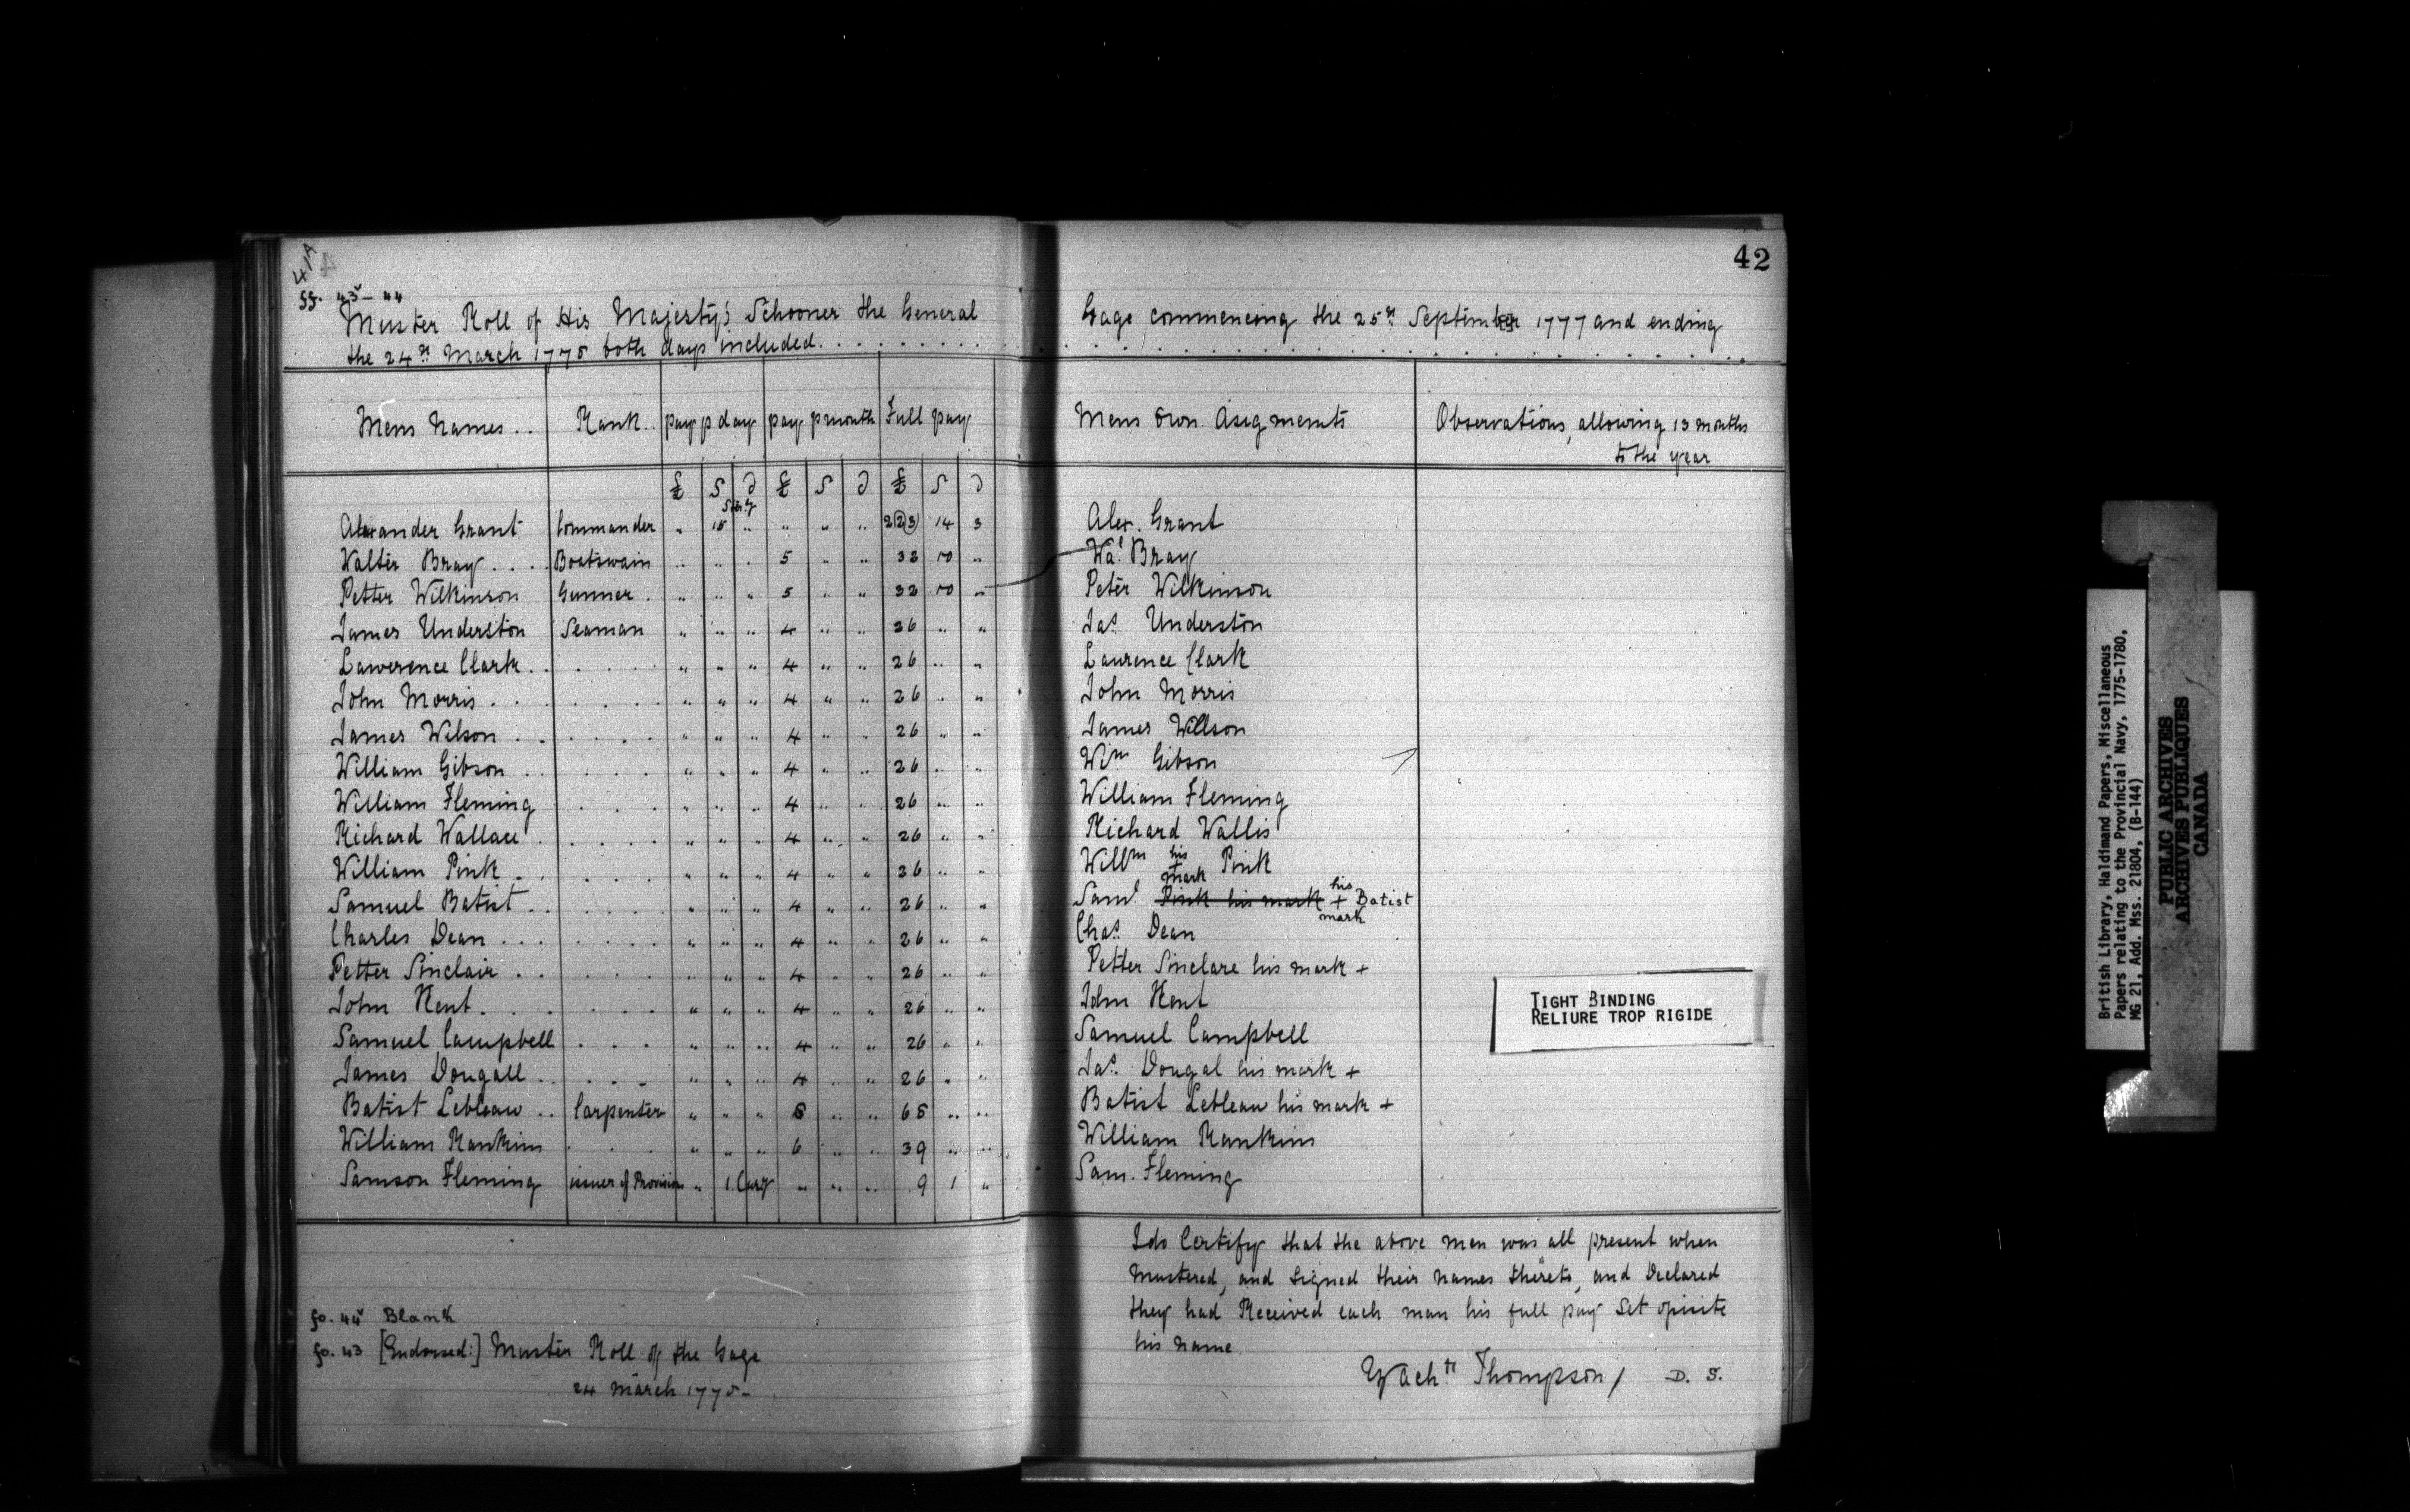 41A
42
ff. 43v - 44
Muster Roll of His Majesty's Schooner the General Gage commencing the 25th September 1777 and ending
the 24th March 1778 both days included. . . . . . . . .
Mens Names . . Rank . . pay p day pay p month Full pay Mens own Asigments Observations, allowing 13 months
to the year
£ S D £ S D £ S D
Sterg
Alexander Grant Commander " 15 " " " " 2(23) 14 3 Alex. Grant
Walter Bray . . . . Boatswain " " " 5 " " 32 10 " Wal Bray
Petter Wilkinson Gunner . " " " 5 " " 32 10 " Peter Wilkinson
James Underston Seaman " " " 4 " " 26 " " Jas Underston
Lawerence Clark . . . . . . " " " 4 " " 26 " " Laurence Clark
John Morris . . . . . . . " " " 4 " " 26 " " John Morris
James Wilson . . . . . . " " " 4 " " 26 " " James Willson
William Gibson . . . . . . " " " 4 " " 26 " " Wim Gibson
William Fleming . . . . " " " 4 " " 26 " " William Fleming
Richard Wallace . . . . . " " " 4 " " 26 " " Richard Wallis
William Pink . . . . . " " " 4 " " 26 " " Willm his + mark Pink
Samuel Batist . . . . . . " " " 4 " " 26 " " Saml Pink his mark his + mark Batist
Charles Dean . . . . . . . " " " 4 " " 26 " " Chas Dean
Petter Sinclair . . . . . . " " " 4 " " 26 " " Petter Sinclare his mark +
John Kent . . . . . . . " " " 4 " " 26 " " John Kent
Samuel Campbell . . . " " " 4 " " 26 " " Samuel Campbell
James Dougall . . . . . " " " 4 " " 26 " " Jas Dougal his mark +
Batist Lebleaw . . Carpenter " " " 8 " " 68 " " Batist Lebleau his mark +
William Rankins . . . " " " 6 " " 39 " " William Rankins
Samson Fleming issuer of Provision " 1. Cury " " " 9 1 " Sam. Fleming
I do Certify that the above men was all present when
Mustered, and Signed their names thereto, and Declared
they had Received each man his full pay Set opisite
his name
Zachh Thompson / D. S.
fo. 44v Blank
fo. 43 [Endorsed:] Muster Roll of the Gage
24 March 1778 -
TIGHT BINDING
RELIURE TROP RIGIDE
British Library, Haldimand Papers, Miscellaneous
Papers relating to the Provincial Navy, 1775-1780,
MG 21, Add. Mss. 21804, (B-144)
PUBLIC ARCHIVES
ARCHIVES PUBLIQUES
CANADA